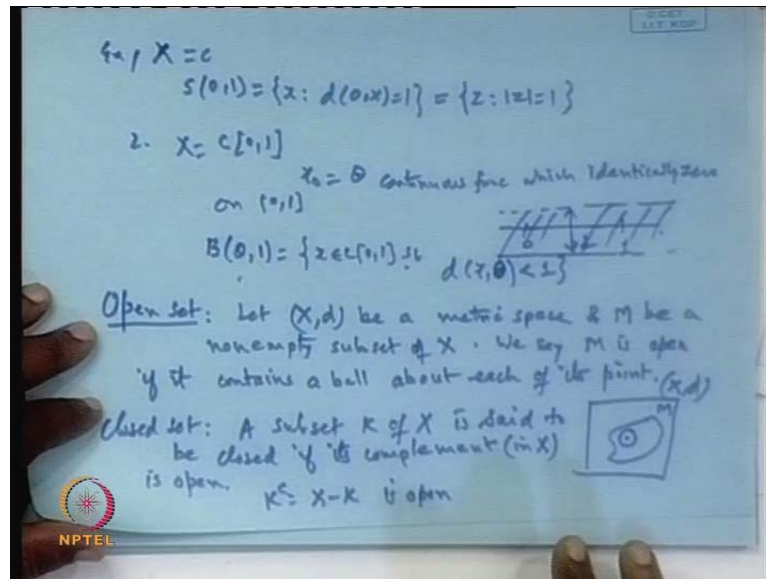 Ex, X = c
S(0,1) = {x : d(0,x)=1} = {z : |z|=1}
2. X = C[0,1]
x₀ = θ continuous func which identically zero
on [0,1]
B(0,1) = {x ∈ C[0,1] st
d(x,θ) < 1}
Open set: Let (X,d) be a metric space & M be a
nonempty subset of X. We say M is open
if it contains a ball about each of its point.
(X,d)
Closed set: A subset K of X is said to
M
be closed if its complement (in X)
is open.
Kᶜ = X - K is open
NPTEL